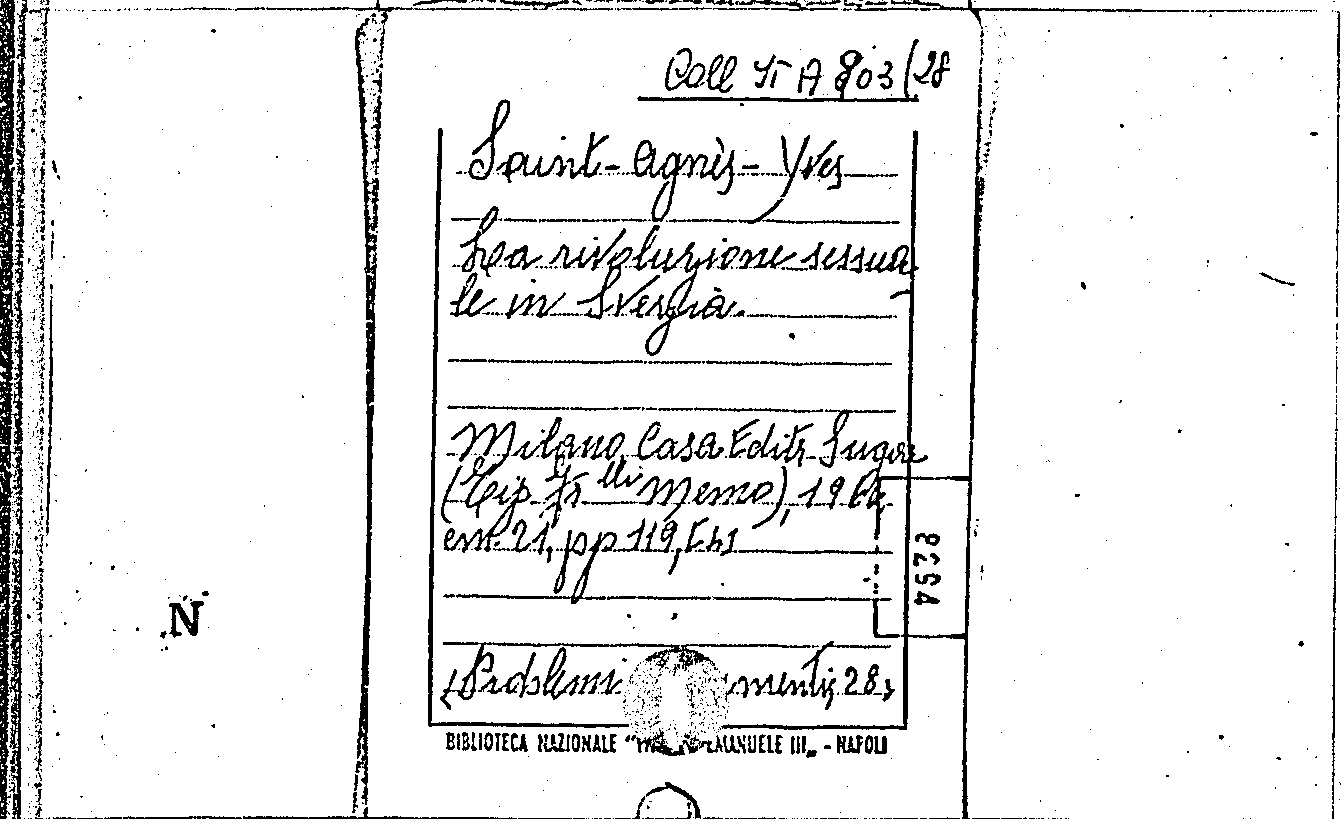 Coll IT A 803/28
Saint-Agnès-Yves
La rivoluzione sessua
le in Svezia.
Milano, Casa Editr. Sugar
(Tip. Fr.lli Memo), 196
cm. 21, pp 119,
8254
N
«Problemi menti, 28»
BIBLIOTECA NAZIONALE EMANUELE III„ - NAPOLI